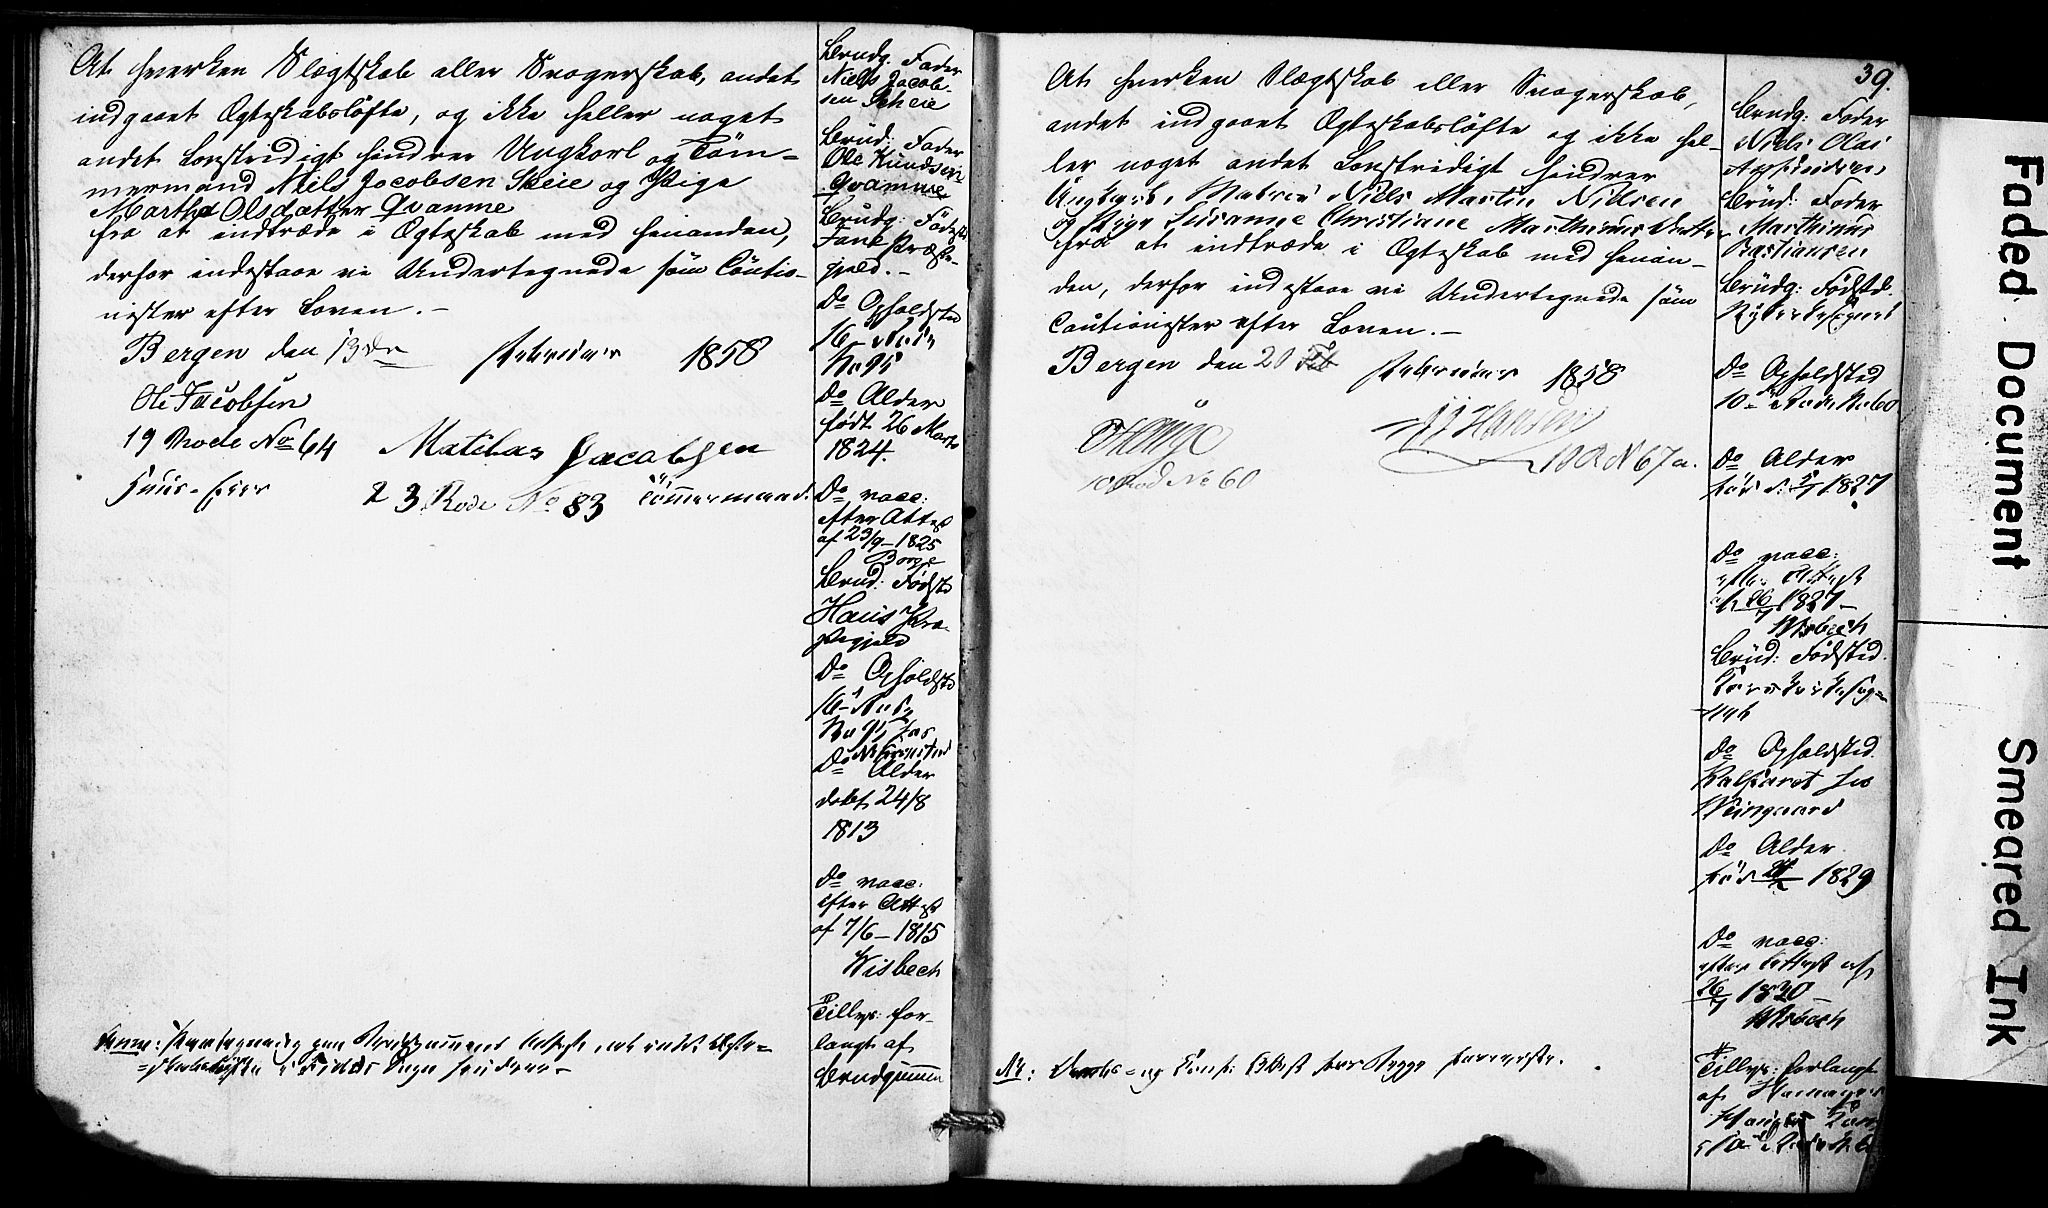 At hverken Slægtskab eller Svogerskab, andet
indgaaet Ægteskabsløfte, og ikke heller noget
andet Lovstridigt hindrer Ungkarl og Tøm-
mermand Niels Jacobsen Skeie og Pige
Martha Olsdatter Qvamme
fra at indtræde i Ægteskab med hinanden,
derfor indestaae vi Undertegnede som Cautio-
nister efter Loven.-
Bergen den 13de Februar 1858
Ole Jacobsen
19 Rode No 64 Mathias Jacobsen
23 Rode No 83 Tømmermand.
Brudg: Fader
Niels Jacob-
sen Scheie
Brud: Fader
Ole Knudsen
Qvamme
Brudg: Fødested
Fane Præste-
gjeld.-
Do Opholdsted
16 Rode
No 95
Do Alder
født 26 Marts
1824.
Do vacc:
efter Attest
af 23/9-1825
Brud: Fødsted
Hans Præ-
stegjeld
Do Opholdsted
16 Rode
No 95 hos
Do Alder
døbt 24/8
1813
Do vacc:
efter Attest
af 7/6-1815
Wisbech
Tillys: for-
langt af
Brudgummen
39.
At hverken Slægtskab eller Svogerskab,
andet indgaaet Ægteskabsløfte og ikke hel-
ler noget andet Lovstridigt hindrer
Ungkarl, Matros Niels Martin Nilsen
og Pige Susanne Christiane Marthinusdatter
fra at indtræde i Ægteskab med hinan-
den, derfor indestaae vi Undertegnede som
Cautionister efter Loven.-
Bergen den 20 Februar 1858
Hauge
10 Rod No 60
Hansen
10 R N 67a.
Brudg: Fader
Niels Olai
Brud: Fader
Marthinus
Bastiansen
Brudg: Fødstd.
Do Opholdsted
10 Rode No 60
Do Alder
født 1827
Do vacc:
efter Attest
af 26/7 1827-
Wisbech
Brud: Fødsted.
Do Opholdsted.
Kalfaret hos
Wiingaard
Do Alder
født 1829
Do vacc:
efter Attest af
26/7 1830
Wisbech
Tillys: forlangt
af
Faded Document
Smeared Ink